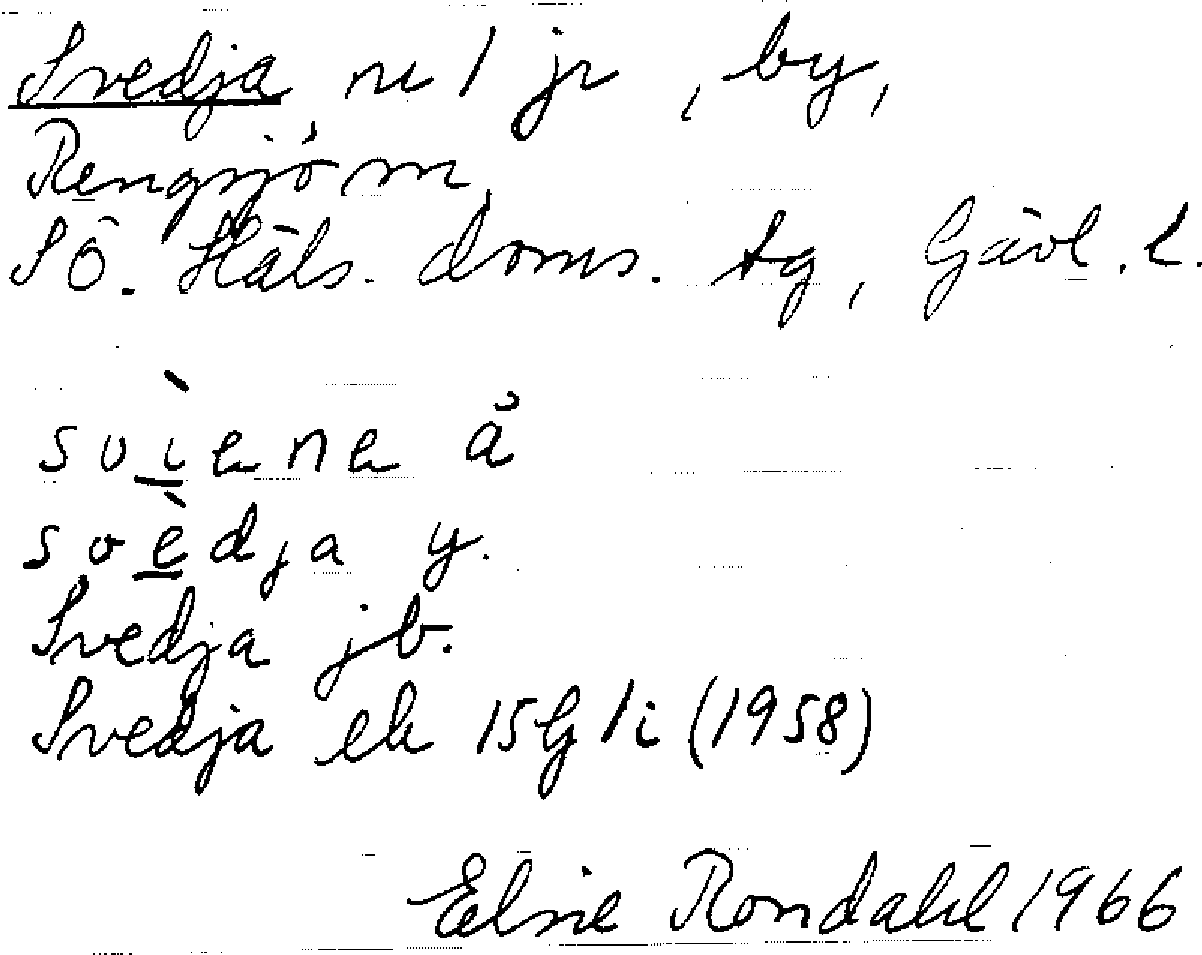 Svedja nr 1 jr , by,
Rengsjö sn
SÖ. Häls. doms. tg, Gävl. l.
svìene å
svèdja y.
Svedja jb.
Svedja ek 15G 1i (1958)
Elsie Rondahl 1966